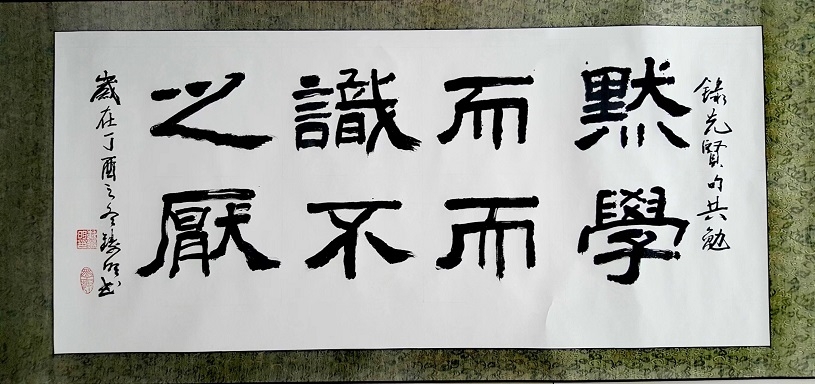 録先賢句共勉
默而識之
學而不厭
歲在丁酉之冬書